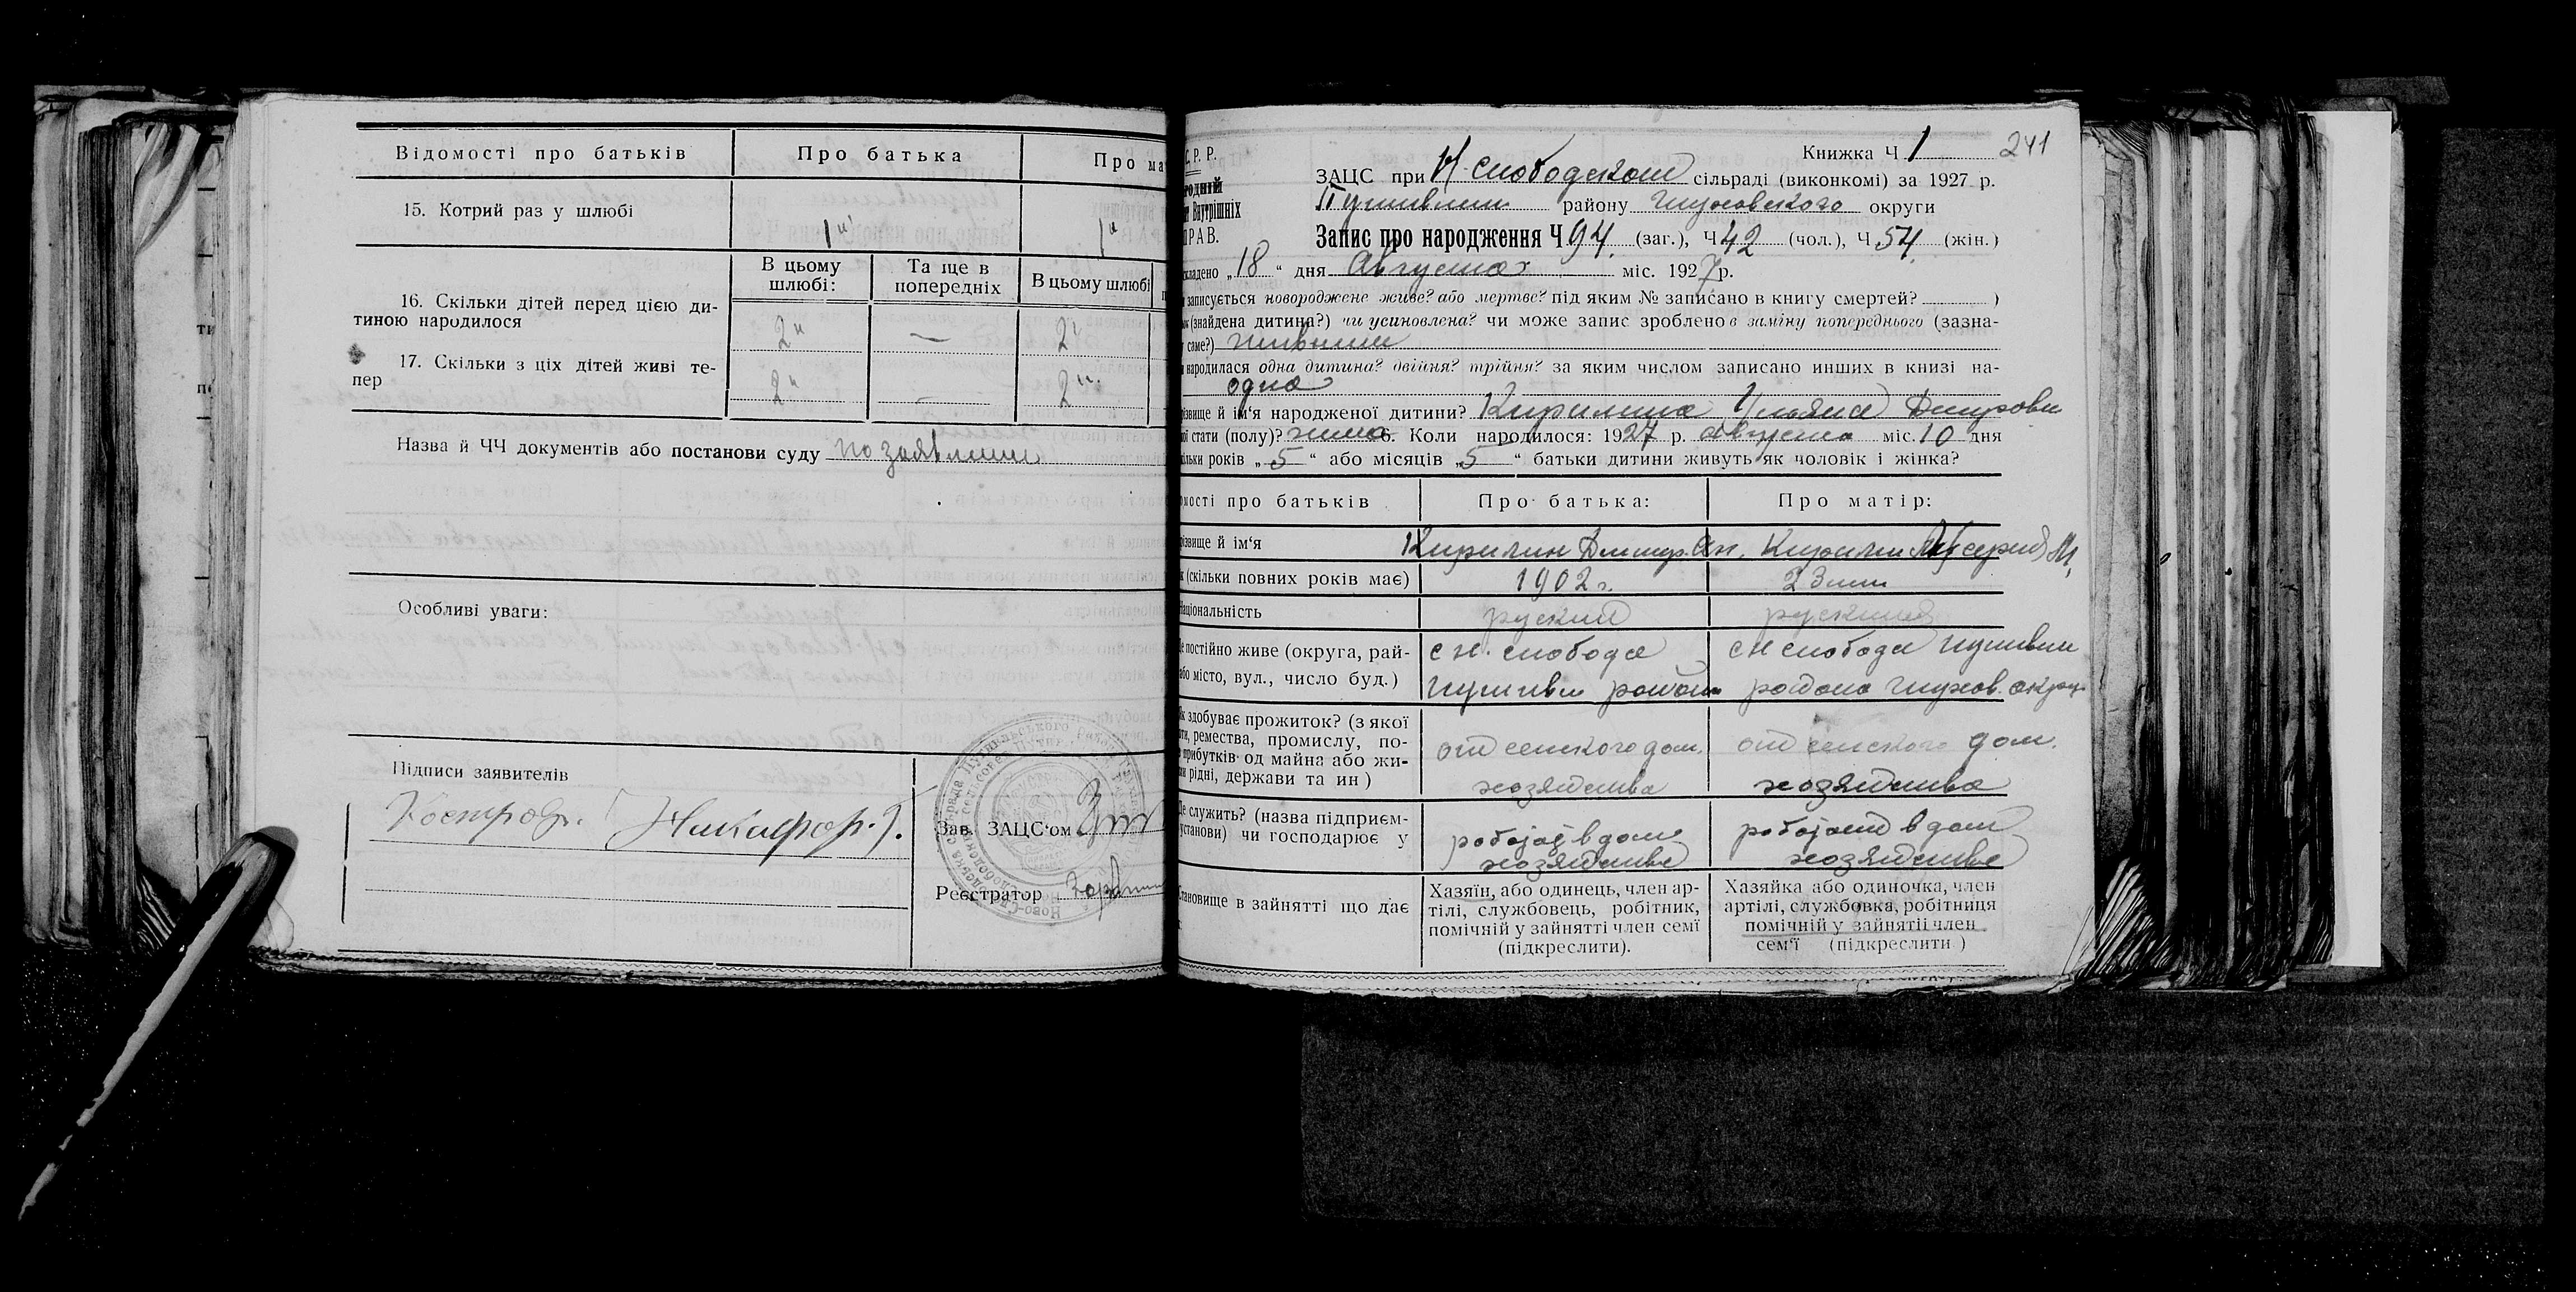 Відомості про батьків
Про батька
Про ма
15. Котрий раз у шлюбі
1й
1й
В цьому шлюбі:
Та ще в попередніх
В цьому шлюбі
16. Скільки дітей перед цією ди-
тиною народилося
2
—
2
17. Скільки з ціх дітей живі те-
пер
2
—
2
Назва й ЧЧ документів або постанови суду по заявлении
Особливі уваги:
Підписи заявителів
Зав. ЗАЦС'ом
Реєстратор
Книжка Ч 1
241
С. Р. Р.
ЗАЦС при Н слободском сільраді (виконкомі) за 1927 р.
родній
Внутрішніх
ПРАВ.
Путивльск району Глуховского округи
Запис про народження Ч 94. (заг.), Ч 42 (чол.), Ч 54. (жін.)
кладено „18“ дня Августа міс. 1927 р.
записується новороджене живе? або мертве? під яким № записано в книгу смертей? )
(знайдена дитина?) чи усиновлена? чи може запис зроблено в заміну попереднього (зазна-
саме?)
народилася одна дитина? двійня? трійня? за яким числом записано инших в книзі на-
одна
різвище й ім'я народженої дитини? Кирилина Ульяна Дмитровн
стати (полу)? 6. Коли народилося: 1927 р. августа міс. 10 дня
ільки років „5“ або місяців „5“ батьки дитини живуть як чоловік і жінка?
мості про батьків
Про батька:
Про матір:
різвище й ім'я
Кирилин Дмитр. Ан.
Кирилин М.
(скільки повних років має)
1902 г.
23
Національність
руский
руская
Де постійно живе (округа, рай-
або місто, вул., число буд.)
с Н. слобода
Путивл район
с Н слобода Путивл
района Глухов. округ
Як здобуває прожиток? (з якої
ремества, промислу, по-
прибутків од майна або жи-
рідні, держави та ин)
от селского дом.
хозяйства
от селского дом.
хозяйства
Де служить? (назва підприєм-
установи) чи господарює у
работает в дом
хозяйстве
работает в дом
хозяйстве
Становище в зайнятті що дає
Хазяїн, або одинець, член ар-
тілі, службовець, робітник,
помічній у зайнятті член семї
(підкреслити).
Хазяйка або одиночка, член
артілі, службовка, робітниця
помічній у зайнятіі член
сем'ї (підкреслити)